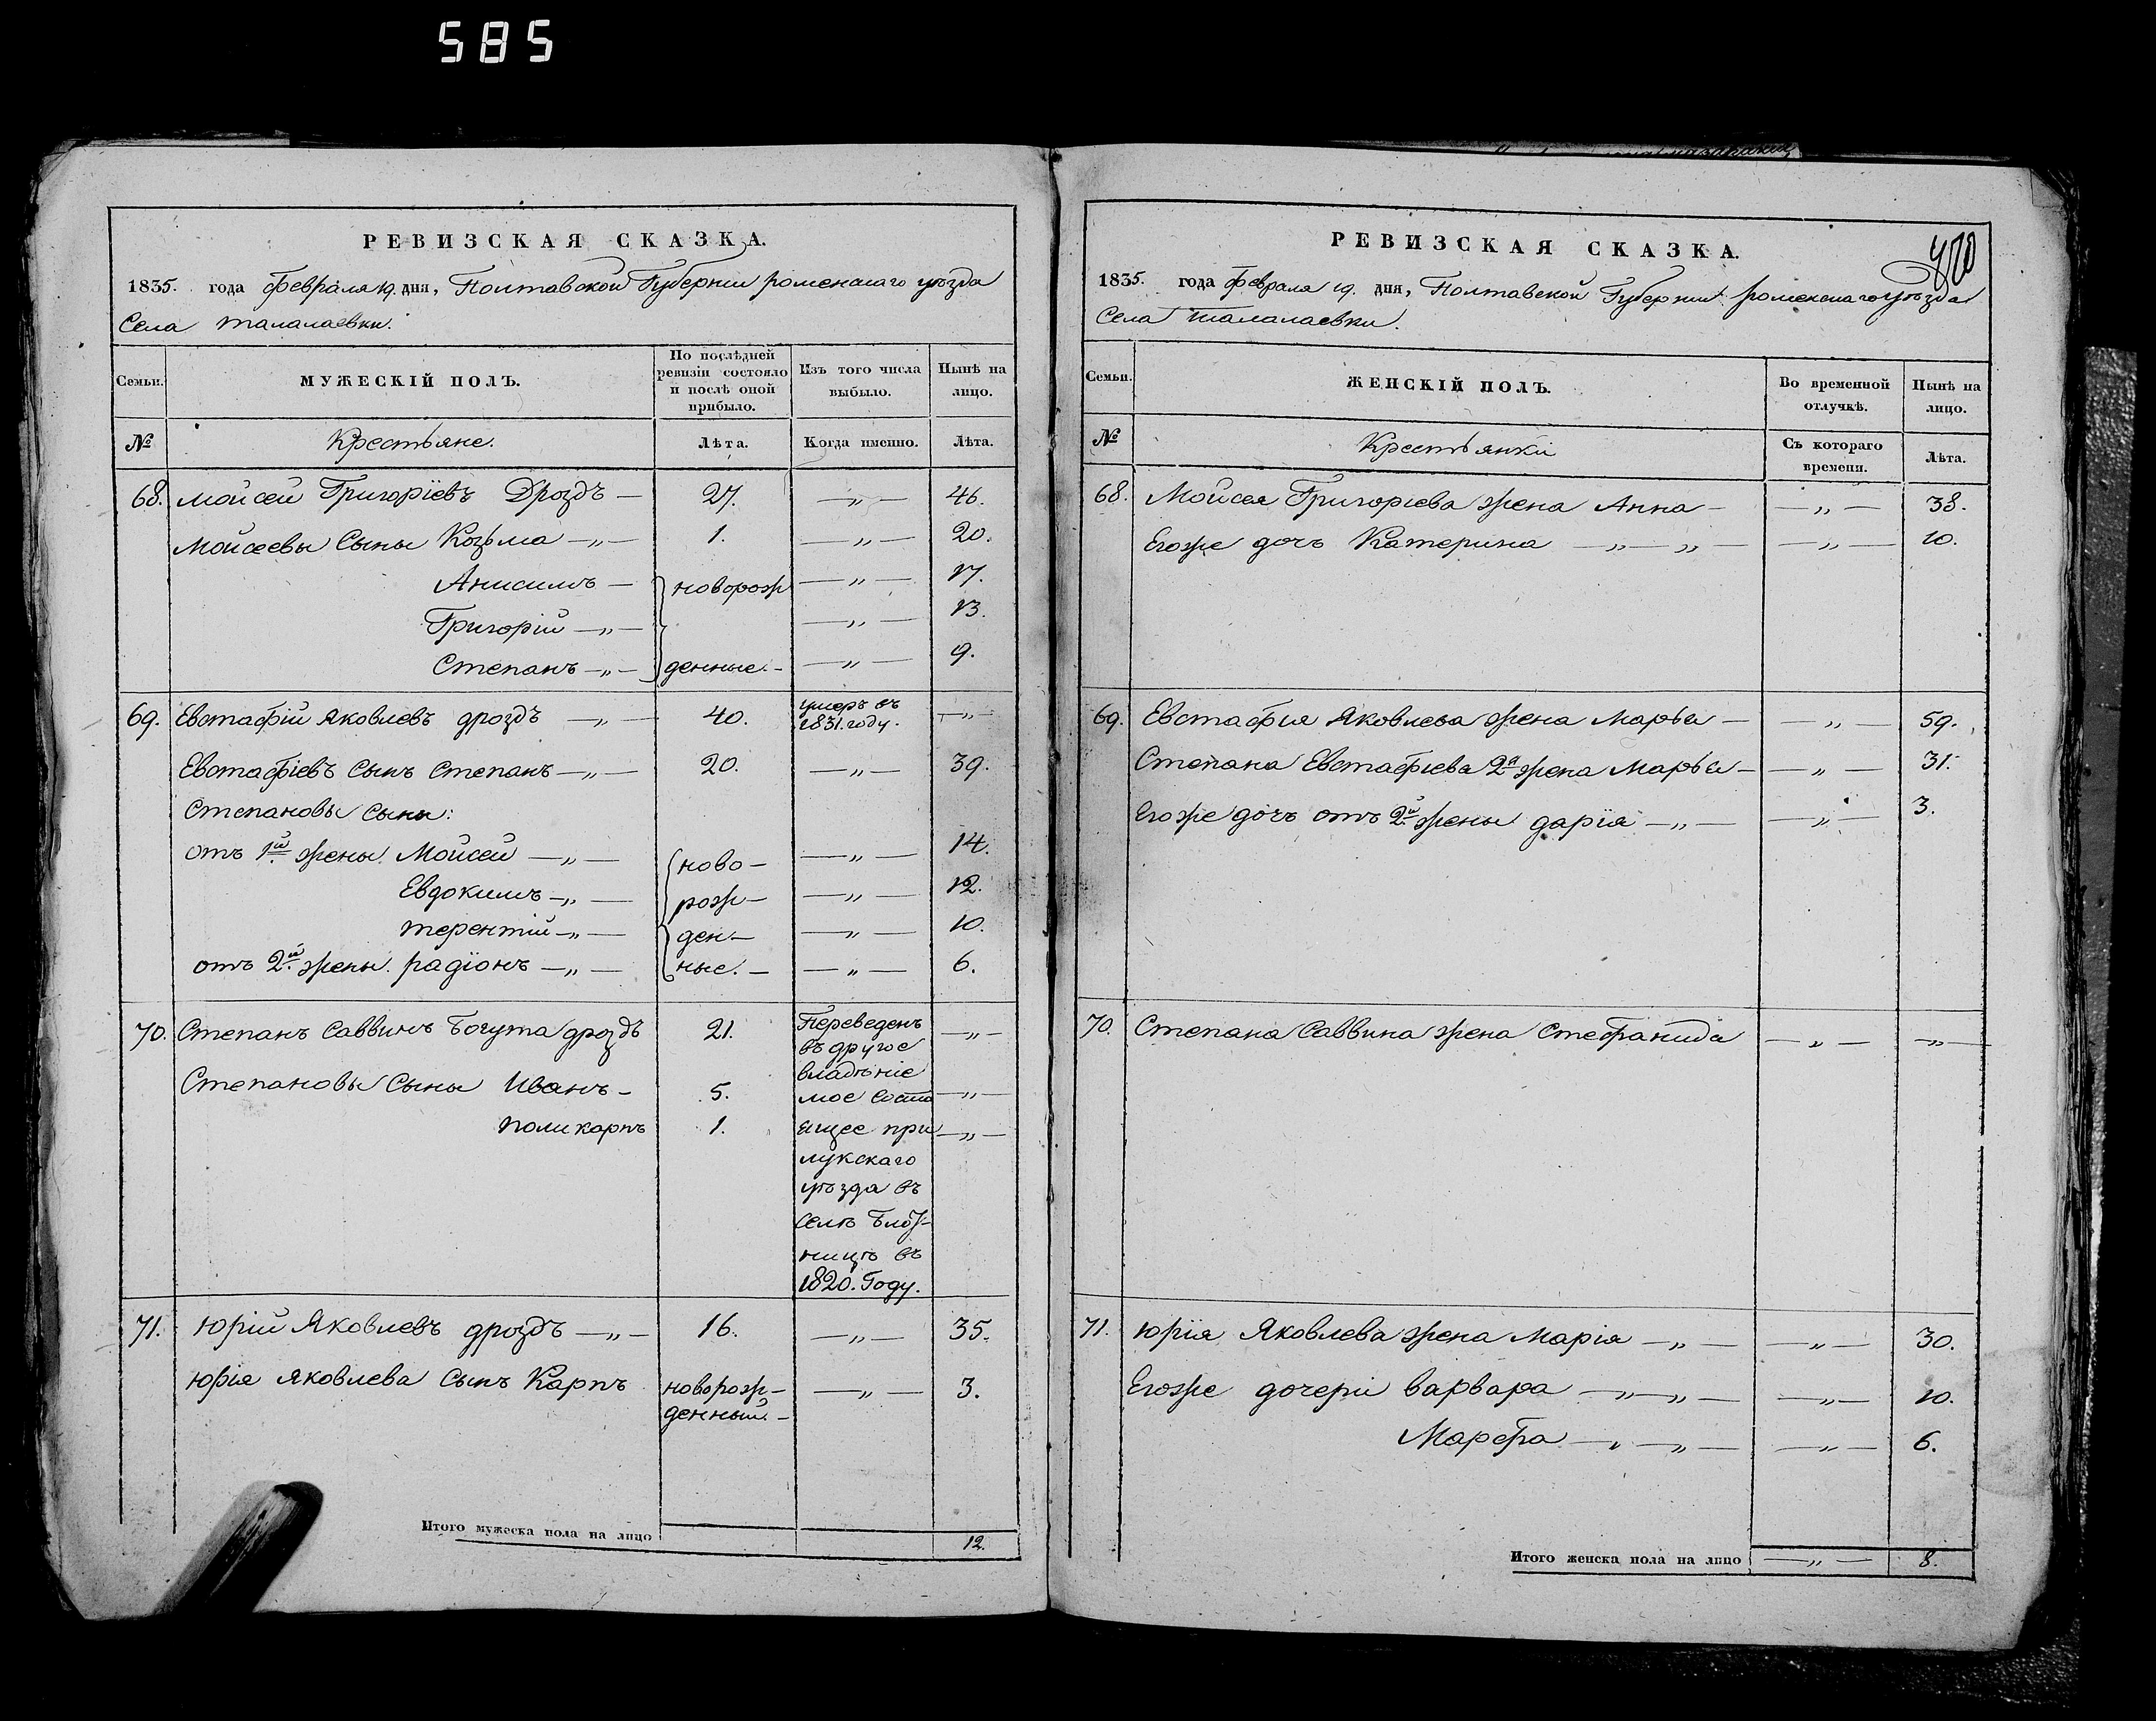 585
РЕВИЗСКАЯ СКАЗКА.
1835. года Февраля 19. дня, Полтавской Губернии роменскаго уѣзда
Села талалаевки.
Семьи.
МУЖЕСКІЙ ПОЛЪ.
По послѣдней ревизіи состояло и послѣ оной прибыло.
Изъ того числа выбыло.
Нынѣ на лицо.
№ Крестьяне. Лѣта. Когда именно. Лѣта.
68. Мойсей Григоріевъ Дроздъ — 27. —„— 46.
Мойсеевы Сыны Козьма —„— 1. —„— 20.
Анисимъ — новорож —„— 17.
Григорій —„— —„— 13.
Степанъ —„— денные. — —„— 9.
69. Евстафій Яковлевъ дроздъ —„— 40. умеръ въ 1831. году. —„—
Евстафіевъ Сынъ Степанъ —„— 20. —„— 39.
Степановы Сыны:
отъ 1й жены Мойсей —„— ново— —„— 14.
Евдокимъ —„— рож— —„— 12.
терентій —„— ден— —„— 10.
отъ 2й жены. радіонъ —„— ные. — —„— 6.
70. Степанъ Саввинъ Богута дроздъ 21. Переведенъ —„—
въ другое
владѣніе
Степановы Сыны Иванъ — 5. мое Состо —„—
поликарпъ 1. ящее при —„—
лукскаго
уѣзда въ
селѣ
ницѣ въ
1820. Году.
71. Юрій Яковлевъ дроздъ —„— 16. —„— 35.
Юрія Яковлева Сынъ Карпъ новорож— —„— 3.
денный. —
Итого мужеска пола на лицо 12.
470
РЕВИЗСКАЯ СКАЗКА.
1835. года февраля 19. дня, Полтавской Губернии роменскаго уѣзда
Села талалаевки.
Семьи.
ЖЕНСКІЙ ПОЛЪ.
Во временной отлучкѣ.
Нынѣ на лицо.
№ Крестьянки Съ котораго времени. Лѣта.
68. Мойсея Григоріева жена Анна — —„— 38.
Егоже дочъ Катерина —„—„— —„— 10.
69. Евстафия Яковлева жена Марья — —„— 59.
Степана Евстафиева 2я жена Марья — —„— 31.
Егоже дочъ отъ 2й жены дарія —„— —„— 3.
70. Степана Саввина жена Стефанида —„— —„—
71. Юрія Яковлева жена Марія —„— —„— 30.
Егоже дочери варвара —„—„— —„— 10.
Марфа —„—„— —„— 6.
Итого женска пола на лицо —„— 8.